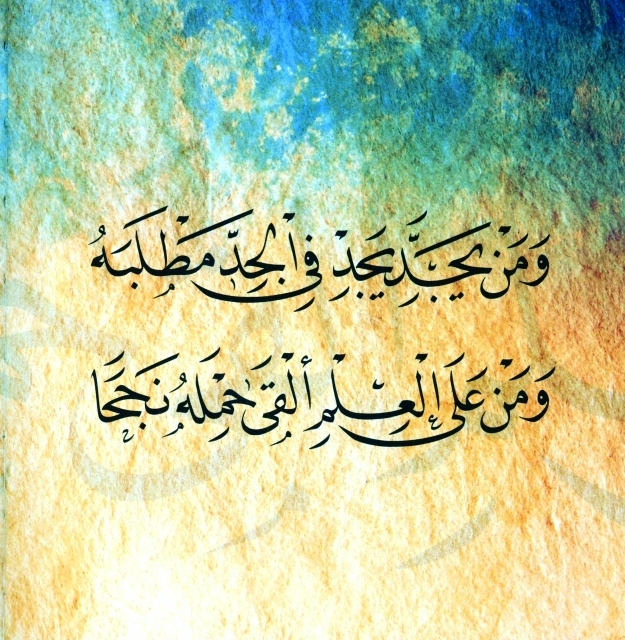 وَمَنْ يَجِدَّ يَجِدْ فِي الْجِدِّ مَطْلَبَهُ
وَمَنْ عَلَى الْعِلْمِ أَلْقَى حِمْلَهُ نَجَحَا